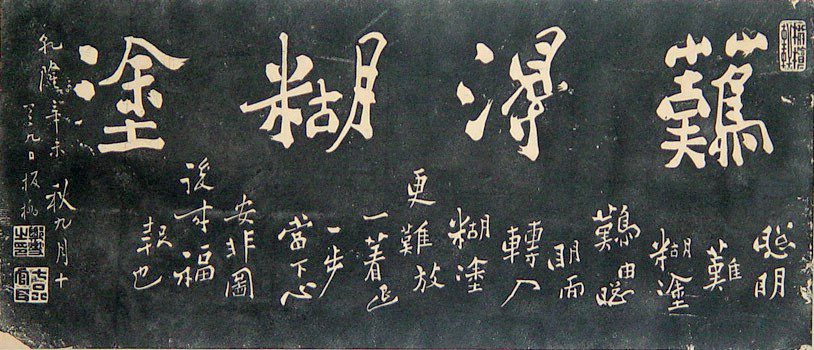 難得糊塗
聰明
難
糊塗
難由聰
明而
轉入
糊塗
更難放
一著退
一步
當下心
安非圖
後来福
報也
乾隆辛未秋九月十
又九日板橋